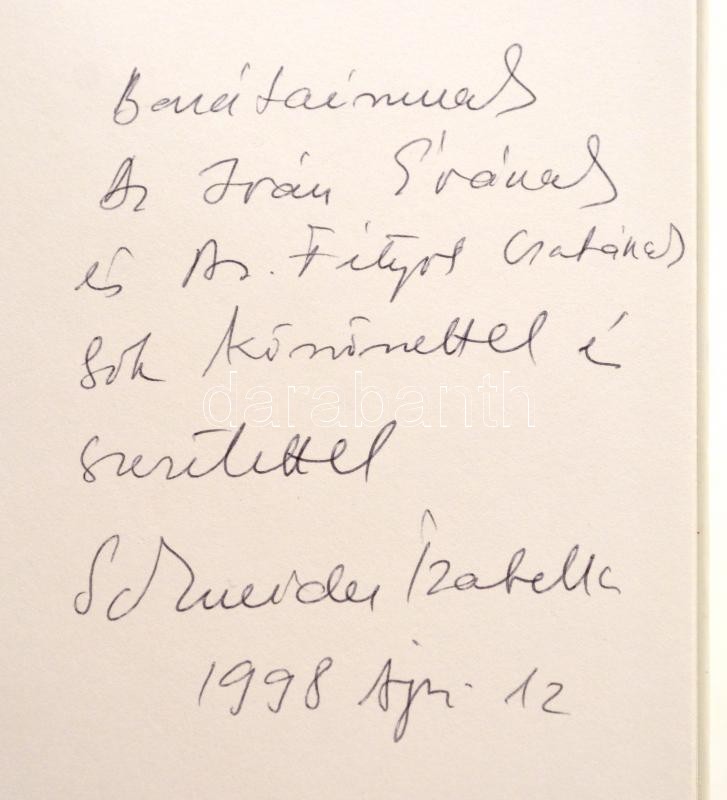 Barátaimnak
Dr Iván Évának
és Dr. Fityos Csabának
Sok köszönettel és
szeretettel
darabanth
Schneider Izabella
1998 Ápr. 12